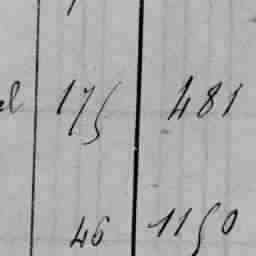 175 481
46 1150